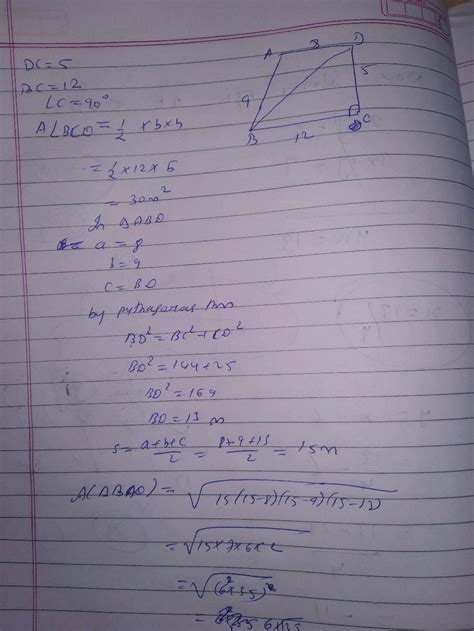 A 8 D
DC = 5
BC = 12
∠C = 90°
9 5
B 12 C
A(BCD) = 1/2 × b × h
= 1/2 × 12 × 5
= 30m²
In ΔABD
a = 8
b = 9
c = BD
by pythagoras thm
BD² = BC² + CD²
BD² = 144 + 25
BD² = 169
BD = 13 m
s = a+b+c/2 = 8+9+13/2 = 15m
A(ΔBAD) = √15(15-8)(15-9)(15-12)
= √15×7×6×2
= √(6²×35)²
= 6×35